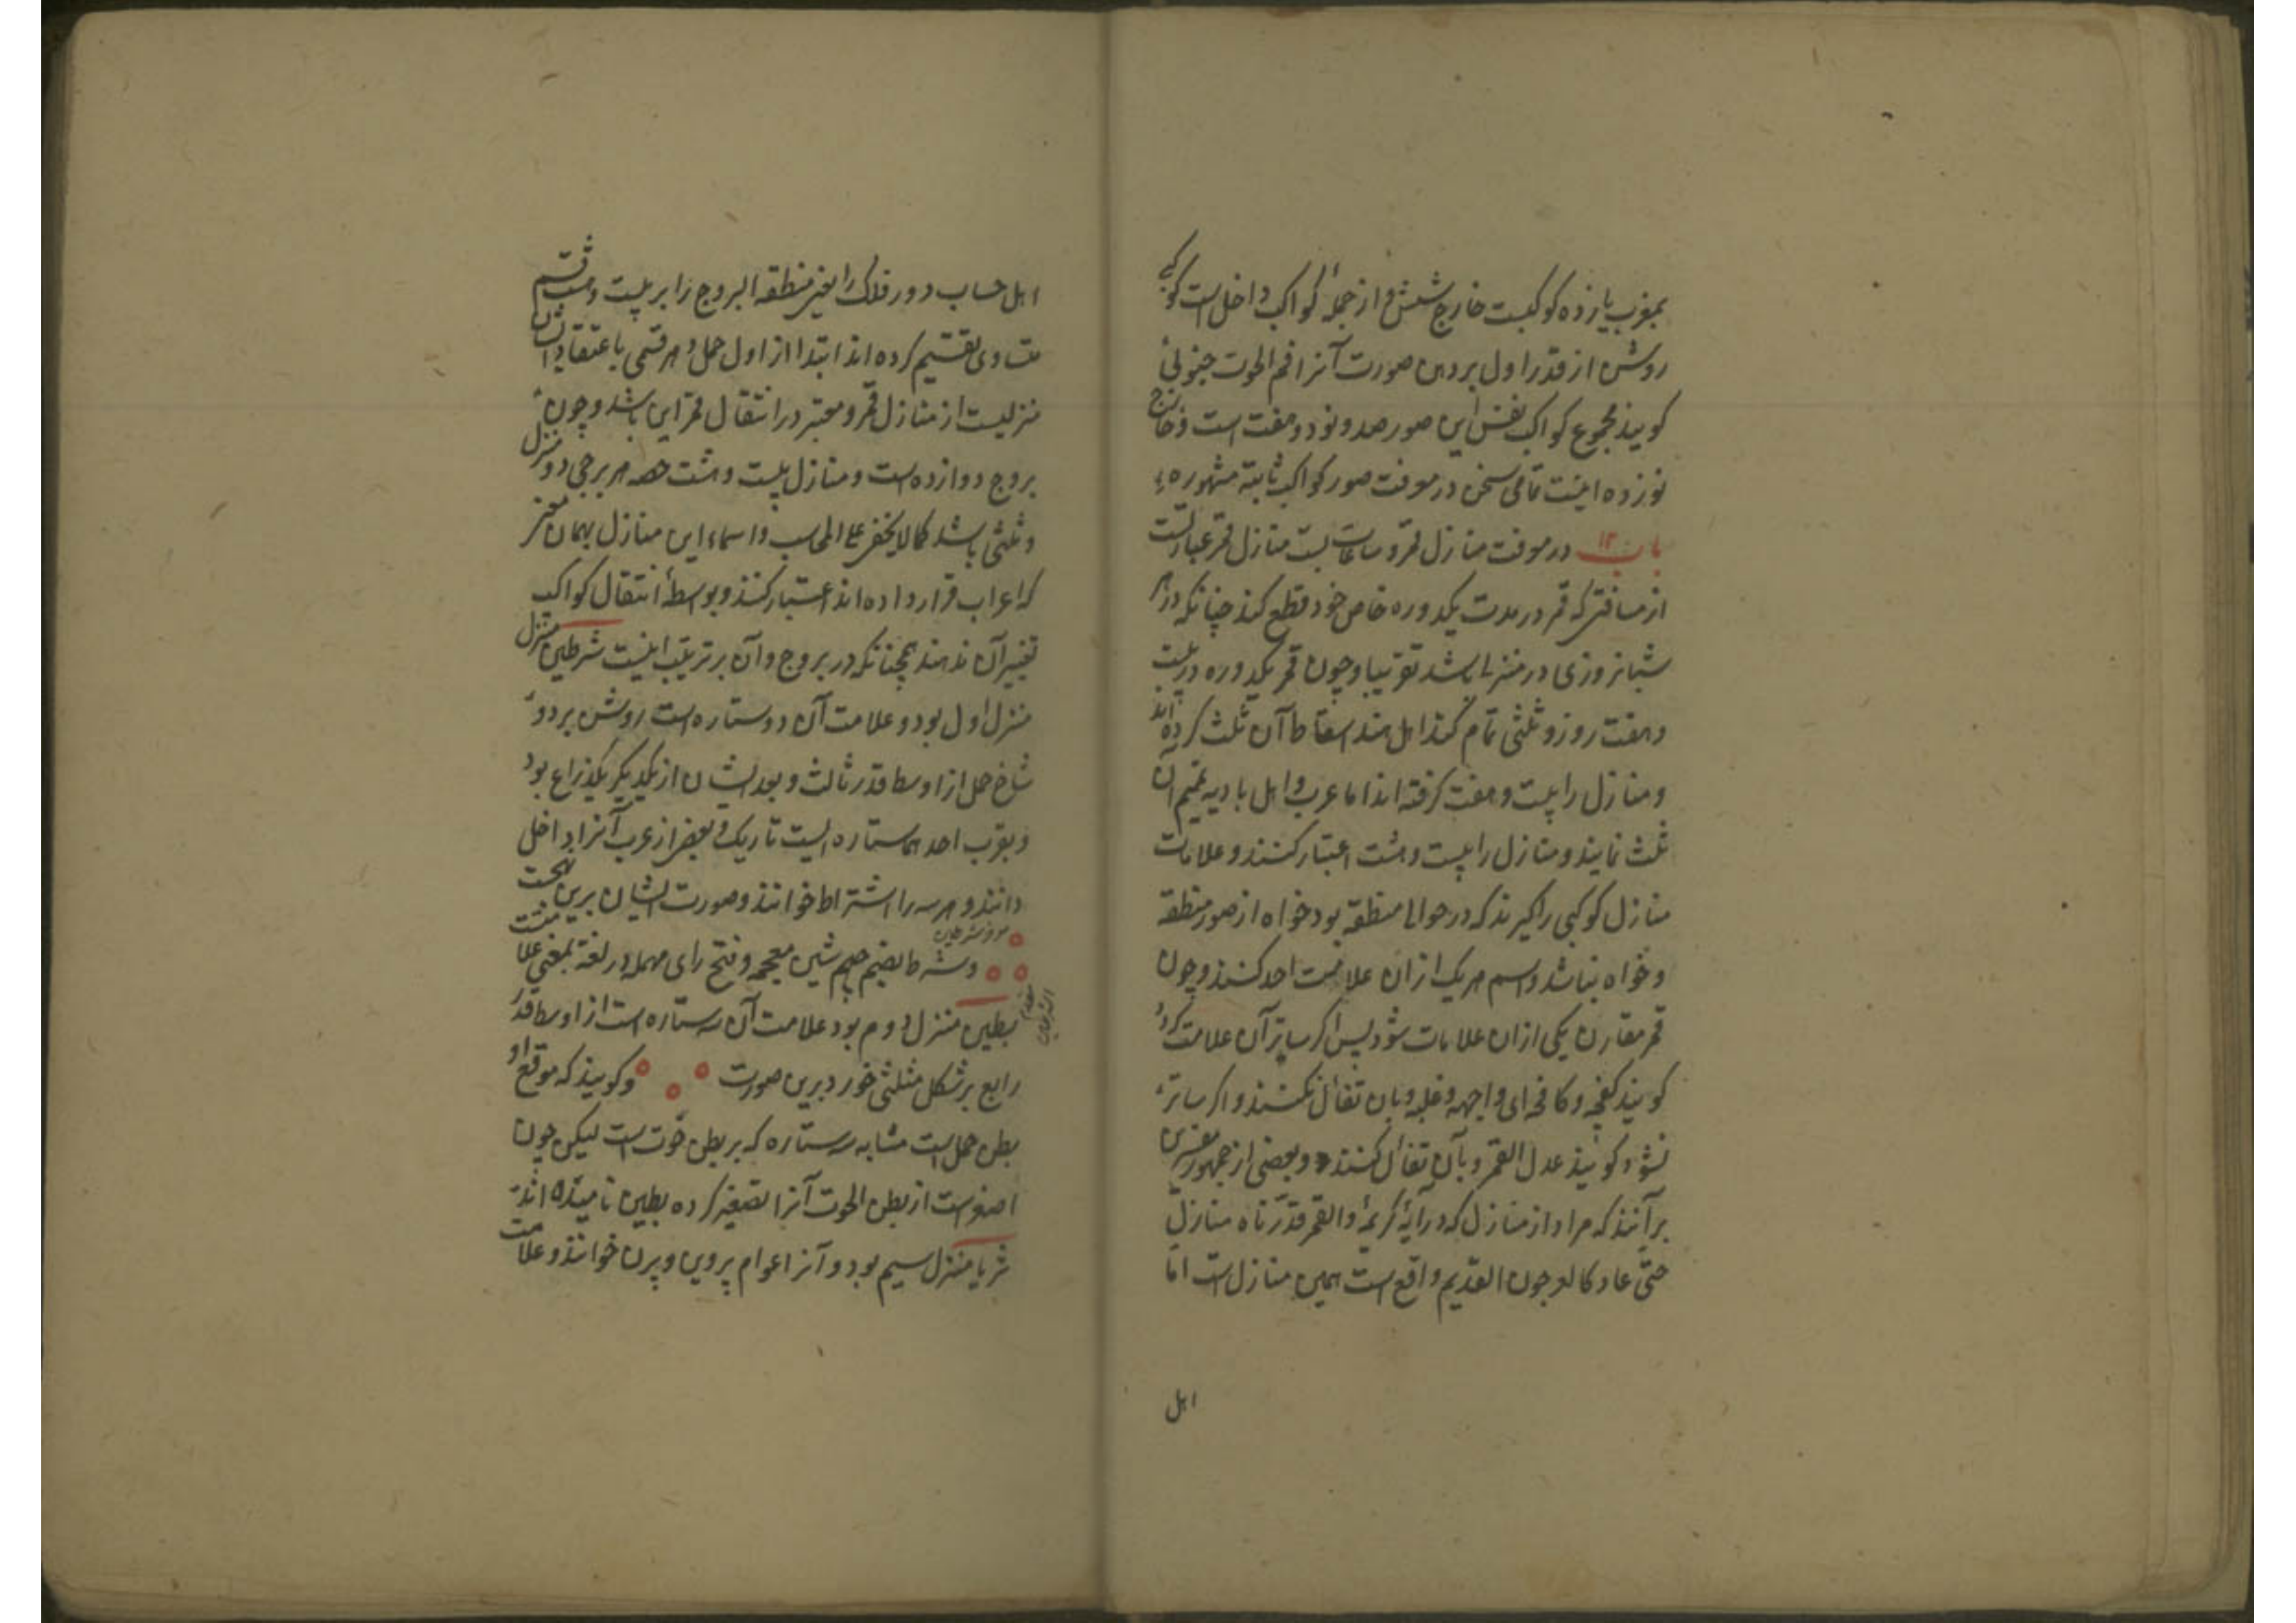 بمغرب یازده کوکبست خارج شش و از جمله کواکب داخل است کوکبی
روشن از قدر اول بر دهن صورت آنرا فم الحوت جنوبی
کویند مجموع کواکب نفس این صور صد و نود و هفت است و خارج
نوزده اینست تمامی سخن در معرفت صور کواکب ثابته مشهوره
باب ١٢ در معرفت منازل قمر و ساعات بست منازل قمر عبارتست
از مسافتی که قمر در مدت یکدوره خاص خود قطع کند چنانکه در هر
شبانروزی در منزلی باشد تقریبا و چون قمر یکدوره در بیست
و هفت روز و ثلثی تمام کند اهل هند اسقاط آن ثلث کرده اند
و منازل را بیست و هفت کرفته اند اما عرب و اهل بادیه تتمیم آن
ثلث نمایند و منازل را بیست و هشت اعتبار کنند و علامات
منازل کوکبی را کیرند که در حوالی منطقه بود خواه از صور منطقه
و خواه نباشد و اسم هر یک از ان علامت احد کنند و چون
قمر مقارن یکی از ان علامات شود پس اکر ساتر آن علامت کردد
کویند کفحه و کافحه ای واجهه و غلبه و بان تفأل نکنند و اکر ساتر
نشود کویند عدل القمر و بآن تفأل کنند و بعضی از جمهور مفسرین
برآنند که مراد از منازل که در آیهٔ کریمهٔ والقمر قدّرناه منازل
حتّی عاد کالعرجون القدیم واقع است همین منازل است امّا
اهل
اهل حساب دور فلک را یعنی منطقه البروج را بر بیست و هشت قسم
متساوی تقسیم کرده اند ابتدا از اول حمل و هر قسمی باعتقاد ایشان
منزلیست از منازل قمر و معتبر در انتقال قمر این باشد و چون
بروج دوازده است و منازل بیست و هشت حصه هر برجی دو منزل
و ثلثی باشد کما لا یخفی علی المحاسب و اسماء این منازل بهمان
که اعراب قرار داده اند اعتبار کنند و بوسطهٔ انتقال کواکب
تغییر آن ندهند همچنانکه در بروج و آن بر ترتیب اینست شرطین منزل
منزل اول بود و علامت آن دو ستاره است روشن بر دو
شاخ حمل از اوسط قدر ثالث و بعد ایشان از یکدیکر یکذراع بود
و بقرب احدهما ستاره ایست تاریک و بعضی از عرب آنرا داخل
دانند و هر سه را اشتراط خوانند و صورت ایشان برین
و شرط بضم جیم شین معجمه و فتح رای مهمله در لغة بمعنی علامت
بطین منزل دوم بود علامت آن سه ستاره است از اوسط قدر
رابع بر شکل مثلثی خورد برین صورت و کویند که موقع او
بطن حمل است مشابه سه ستاره که بر بطن حوت است لیکن چون
اصغر است از بطن الحوت آنرا تصغیر کرده بطین نامیده اند
ثریا منزل سیم بود و آنرا عوام پروین و پرن خوانند و علامت